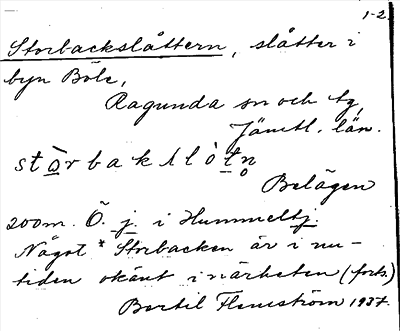 1-2.
Storbackslåttern, slåtter i
byn Böle,
Ragunda sn och tg,
Jämtl. län.
stòrbakslòtn̥
Belägen
200 m. Ö. j. i Hummeltj.
Något * Storbacken är i nu-
tiden okänt i närheten (forts.)
Bertil Flemström 1937.